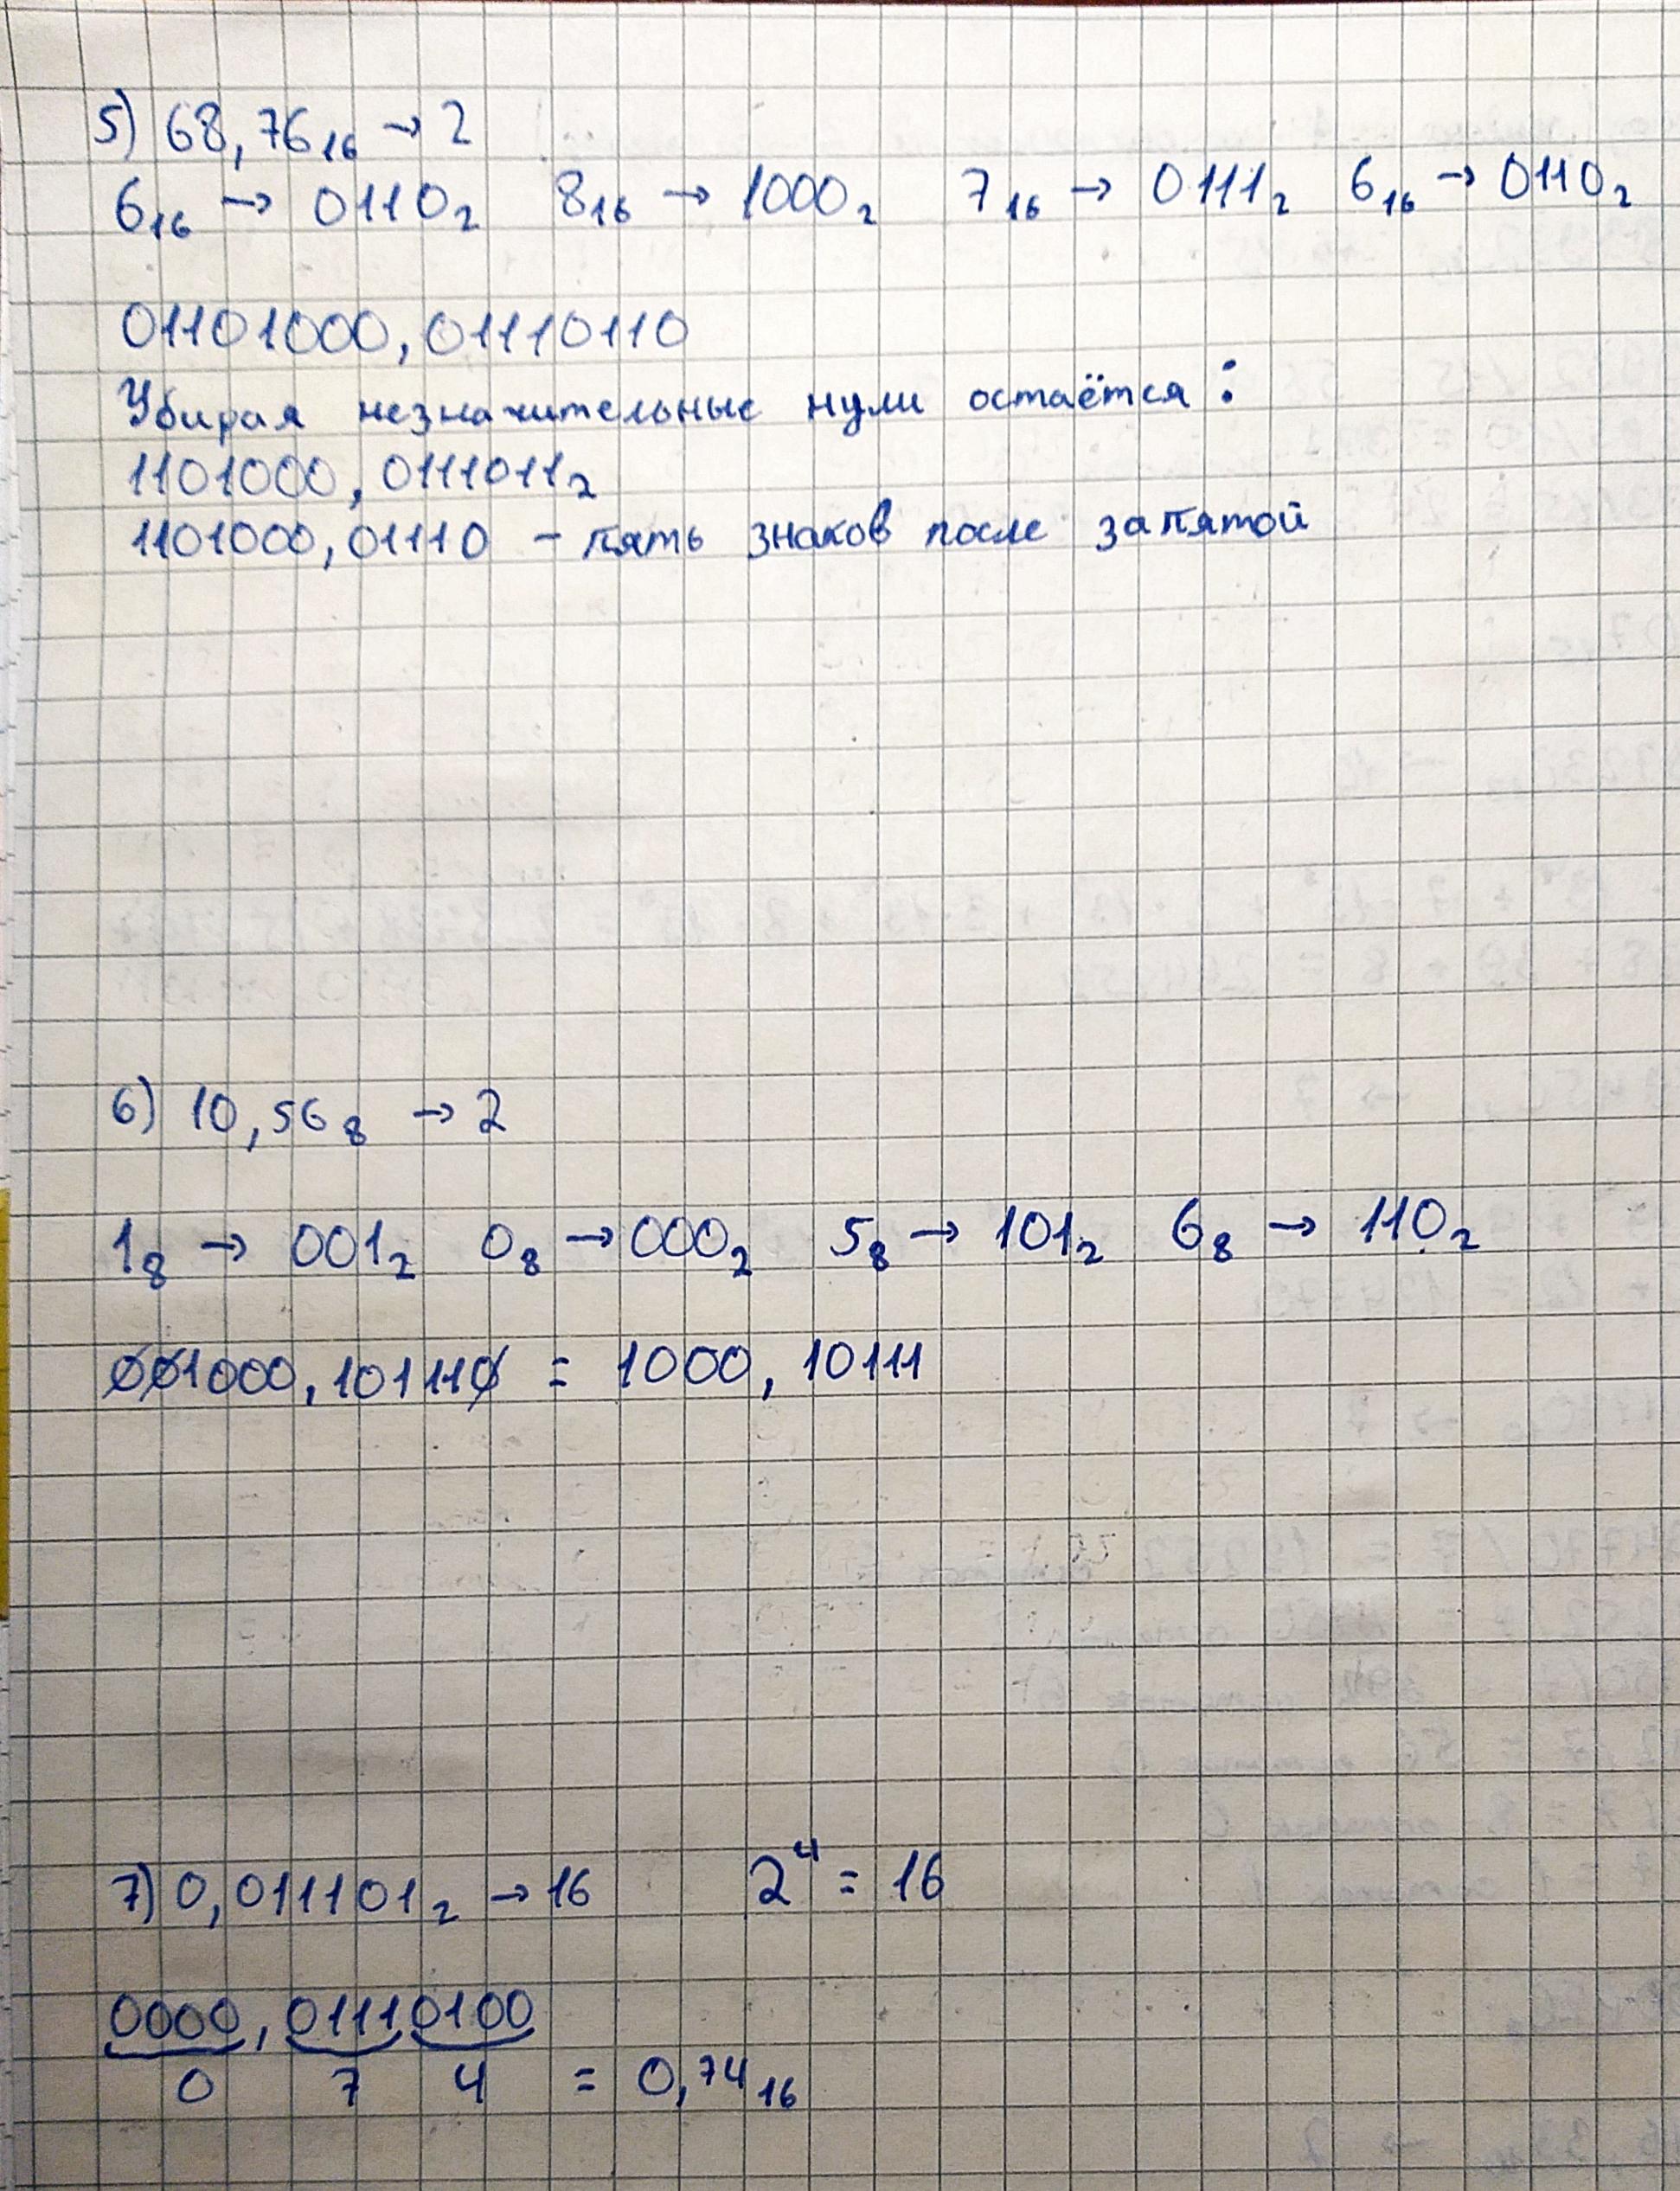 5) 68,76₁₆ → 2
6₁₆ → 0110₂ 8₁₆ → 1000₂ 7₁₆ → 0111₂ 6₁₆ → 0110₂
01101000,01110110
Убирая незначительные нули остаётся:
1101000,0111011₂
1101000,01110 – пять знаков после запятой
6) 10,56₈ → 2
1₈ → 001₂ 0₈ → 000₂ 5₈ → 101₂ 6₈ → 110₂
001000,101110 = 1000,10111
7) 0,011101₂ → 16 2⁴ = 16
0000,01110100
0 7 4 = 0,74₁₆